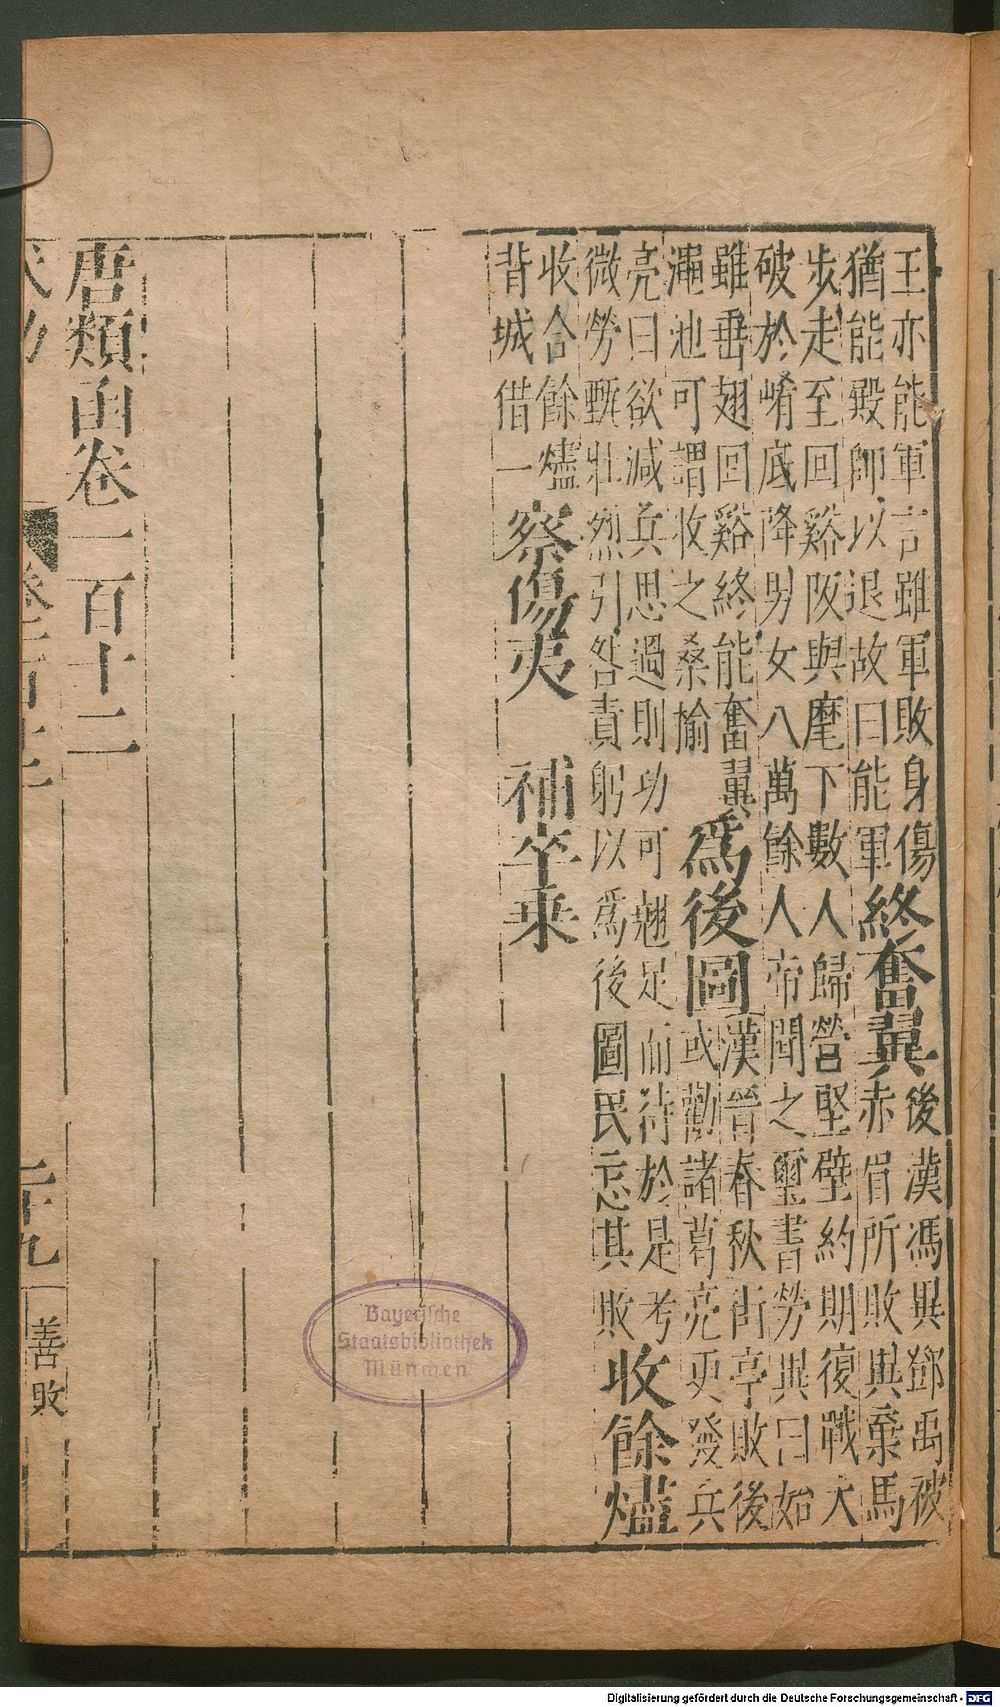 王亦能軍言雖軍敗身傷
猶能殿師以退故曰能軍
終奮翼
後漢馮異鄧禹被
赤眉所敗異棄馬
步走至回谿阪與麾下數人歸營堅壁約期復戰大
破於崤底降男女八萬餘人帝聞之璽書勞異曰始
雖垂翅回谿終能奮翼
澠池可謂收之桑榆
爲後圖
漢晉春秋街亭敗後
或勸諸葛亮更發兵
亮曰欲減兵思過則功可翹足而待於是考
微勞甄壯烈引咎責躬以爲後圖民忘其敗
收餘燼
收合餘燼
背城借一
察傷夷
補卒乘
唐類函卷一百十二
二十九
善敗
Bayerische
Staatsbibliothek
München
Digitalisierung gefördert durch die Deutsche Forschungsgemeinschaft - DFG